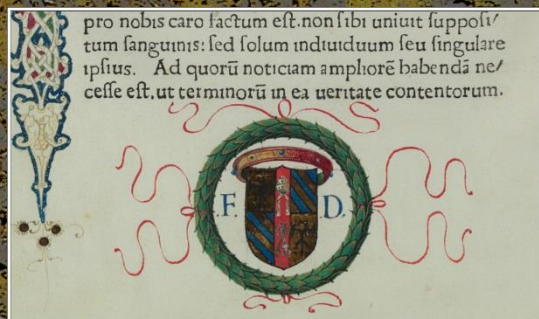 pro nobis caro factum est. non sibi uniuit supposi/
tum sanguinis: sed solum indiuiduum seu singulare
ipsius. Ad quorū noticiam ampliorē habendā ne/
cesse est, ut terminorū in ea ueritate contentorum.
.F. D.